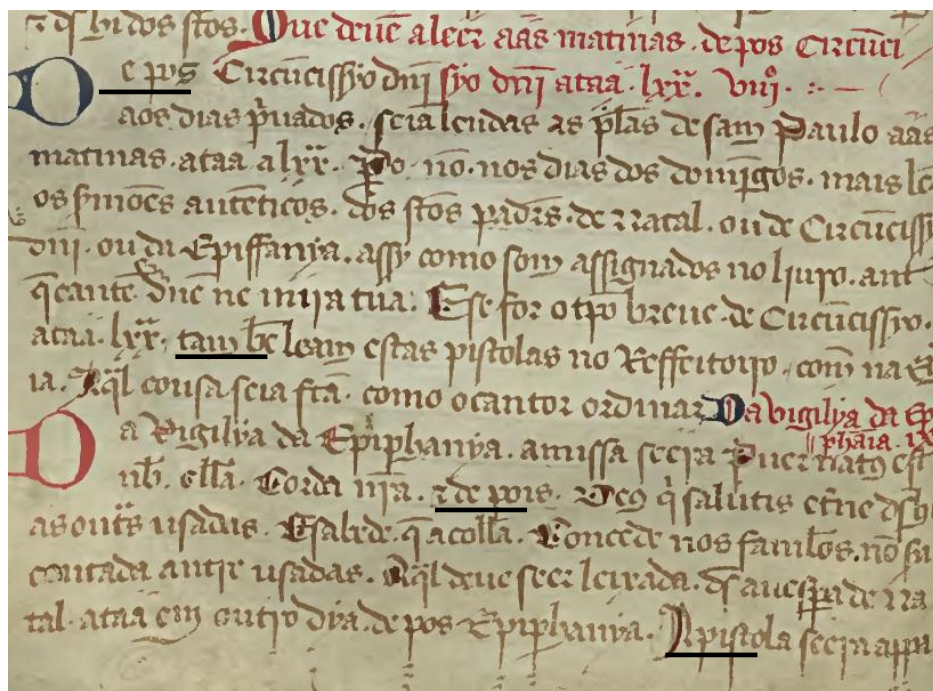 ⁊ ds hi dos st̃os. Que deuẽ aleer aas matinas. de pos Circũci
De pos Circũcissyo dñi syo dñi ataa. lxx̃. viiiº.
aos dias p̃uados. seia lendas as p̃las de sam Paulo aas
matinas. ataa a lxx̃. Po. nõ. nos dias dos domĩgos. mais le
os ẜmoẽs autẽticos. dos st̃os padr̃s. de natal. ou de Circũcissy
dñi. ou da Epiffanya. assy como som assignados no liuro. ant
q̃ cante. dñe ne in ira tua. E se for o tp̃o breue. de Circũcissyo.
ataa. lxx̃. tam bẽ leam estas pistolas no Reffertoiro, com na
ia. A q̃l cousa seia fc̃ã. como o cantor ordinar Da vigilya da Ep
phãia. ix
Da Vigilya da Epiphanya. a missa seera Puer natꝯ est
nb̃. ellã. Corda nr̃a. ⁊ de pois. Deꝯ q̃ salutis et̃ne ds
as out̃s usadas. E sabede. q̃ a collã. Concede nos famulos. nõ
contada antre usadas. A q̃l deue seer leixada. ds a uespa de na
tal. ataa em outro dya. de pos Epiphanya. A pistola seera appa